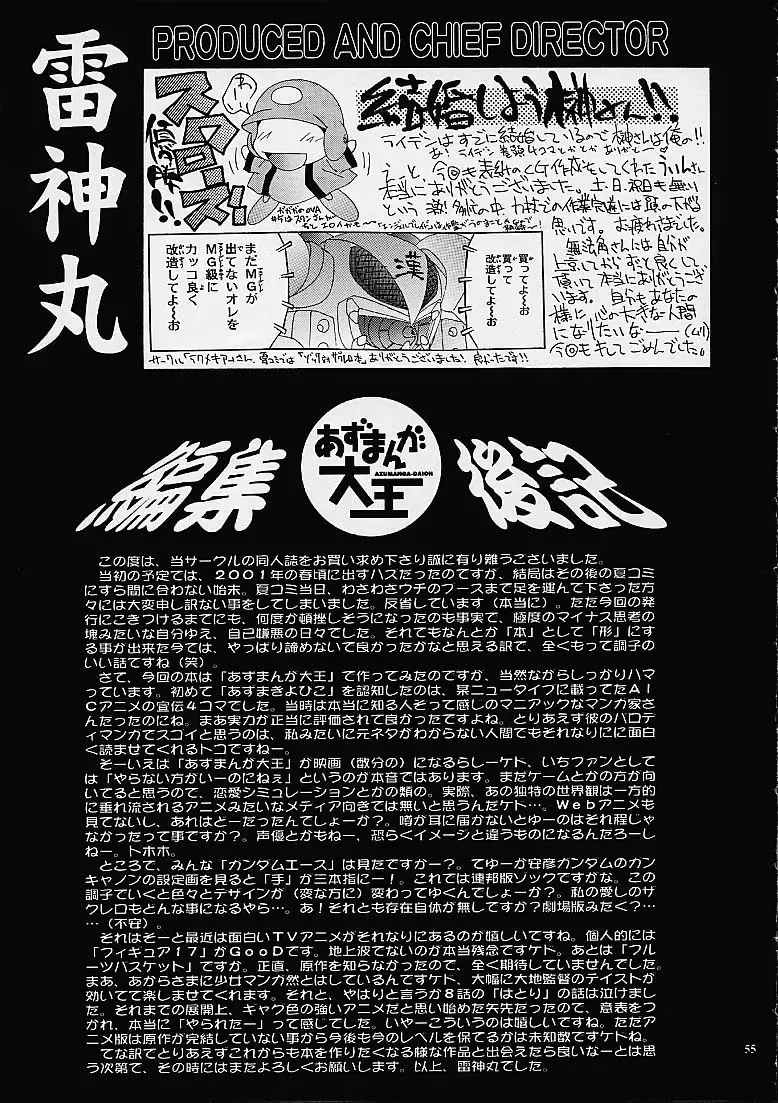 雷神丸
PRODUCED AND CHIEF DIRECTOR
結婚しよう榊さん!!
ライデンはすでに結婚しているので榊さんは俺の!!
えっと、今回も表紙のCG作成をしてくれたういんさん
本当にありがとうございました。土・日、祝日も無い
という激
思いです。お疲れさまでした。
無法角さんには自分が
頂いて本当にありがとうござ
います。自分もあなたの
様に、心の大きな人間
になりたいなー(ムリ)
今回もキレしてごめんでした。
買ってよ〜お
買って
改造してよ〜お
漢
まだMGが
出てないオレを
MG級に
カッコ良く
改造してよ〜お
編集
あずまんが
AZUMANGA-DAIOH
大王
後記
この度は、当サークルの同人誌をお買い求め下さり誠に有り難うこさいました。
当初の予定ては、2001年の春頃に出すハスだったのてすが、結局はその後の夏コミ
にすら間に合わない始末。夏コミ当日、わさわさウチのフースまて足を運んて下さった方
々には大変申し訳ない事をしてしまいました。反省しています(本当に)。ただ今回の発
行にこきつけるまてにも、何度か頓挫しそうになったのも事実て、極度のマイナス思考の
塊みたいな自分ゆえ、自己嫌悪の日々てした。それてもなんとか「本」として「形」にす
る事が出来た今ては、やっぱり諦めないて良かったかなと思える訳て、全くもって調子の
いい話てすね(笑)。
さて、今回の本は「あずまんが大王」て作ってみたのてすが、当然ながらしっかりハマ
っています。初めて「あずまきよひこ」を認知したのは、某ニュータイフに載ってたAI
Cアニメの宣伝4コマてした。当時は本当に知る人そって感しのマニアックなマンカ家さ
んたったのにね。まあ実力が正当に評価されて良かったてすよね。とりあえす彼のハロテ
ィマンカてスコイと思うのは、私みたいに元ネタかわからない人間てもそれなりにに面白
く読ませてくれるトコてすねー。
そーいえは「あずまんが大王」が映画(数分の)になるらしーケト、いちファンとして
は「やらない方がいーのにねぇ」というのが本音てはあります。まだケームとかの方が向
いてると思うのて、恋愛シミュレーションとかの類の。実際、あの独特の世界観は一方的
に垂れ流されるアニメみたいなメティア向きては無いと思うんたケト…。Webアニメも
見てないし、あれはとーだったんてしょーか？。噂が耳に届かないとゆーのはそれ程じゃ
なかったって事てすか？。声優とかもねー、恐らくイメーシと違うものになるんたろーし
ねー。トホホ。
ところて、みんな「カンタムエース」は見たてすかー？。てゆーか安彦カンタムのカン
キャノンの設定画を見ると「手」が三本指にー！。これては連邦版ソックてすかな。この
調子ていくと色々とテサインが(変な方に)変わってゆくんてしょーか？。私の愛しのザ
クレロもとんな事になるやら…。あ！それとも存在自体が無してすか？劇場版みたく？…
…(不安)。
それはそーと最近は面白いTVアニメがそれなりにあるのが嬉しいてすね。個人的には
「フィキュア17」がGooDてす。地上波てないのが本当残念てすケト。あとは「フル
ーツバスケット」てすか。正直、原作を知らなかったのて、全く期待していませんてした。
まあ、あからさまに少女マンカ然とはしているんてすケト、大幅に大地監督のテイストが
効いてて楽しませてくれます。それと、やはりと言うか8話の「はとり」の話は泣けまし
た。それまての展開上、キャク色の強いアニメだと思い始めた矢先だったのて、意表をつ
かれ、本当に「やられたー」って感してした。いやーこういうのは嬉しいてすね。たたア
ニメ版は原作が完結していない事から今後も今のレヘルを保てるかは未知数てすケトね。
てな訳てとりあえすこれからも本を作りたくなる様な作品と出会えたら良いなーとは思
う次第て、その時にはまたよろしくお願いします。以上、雷神丸てした。
55